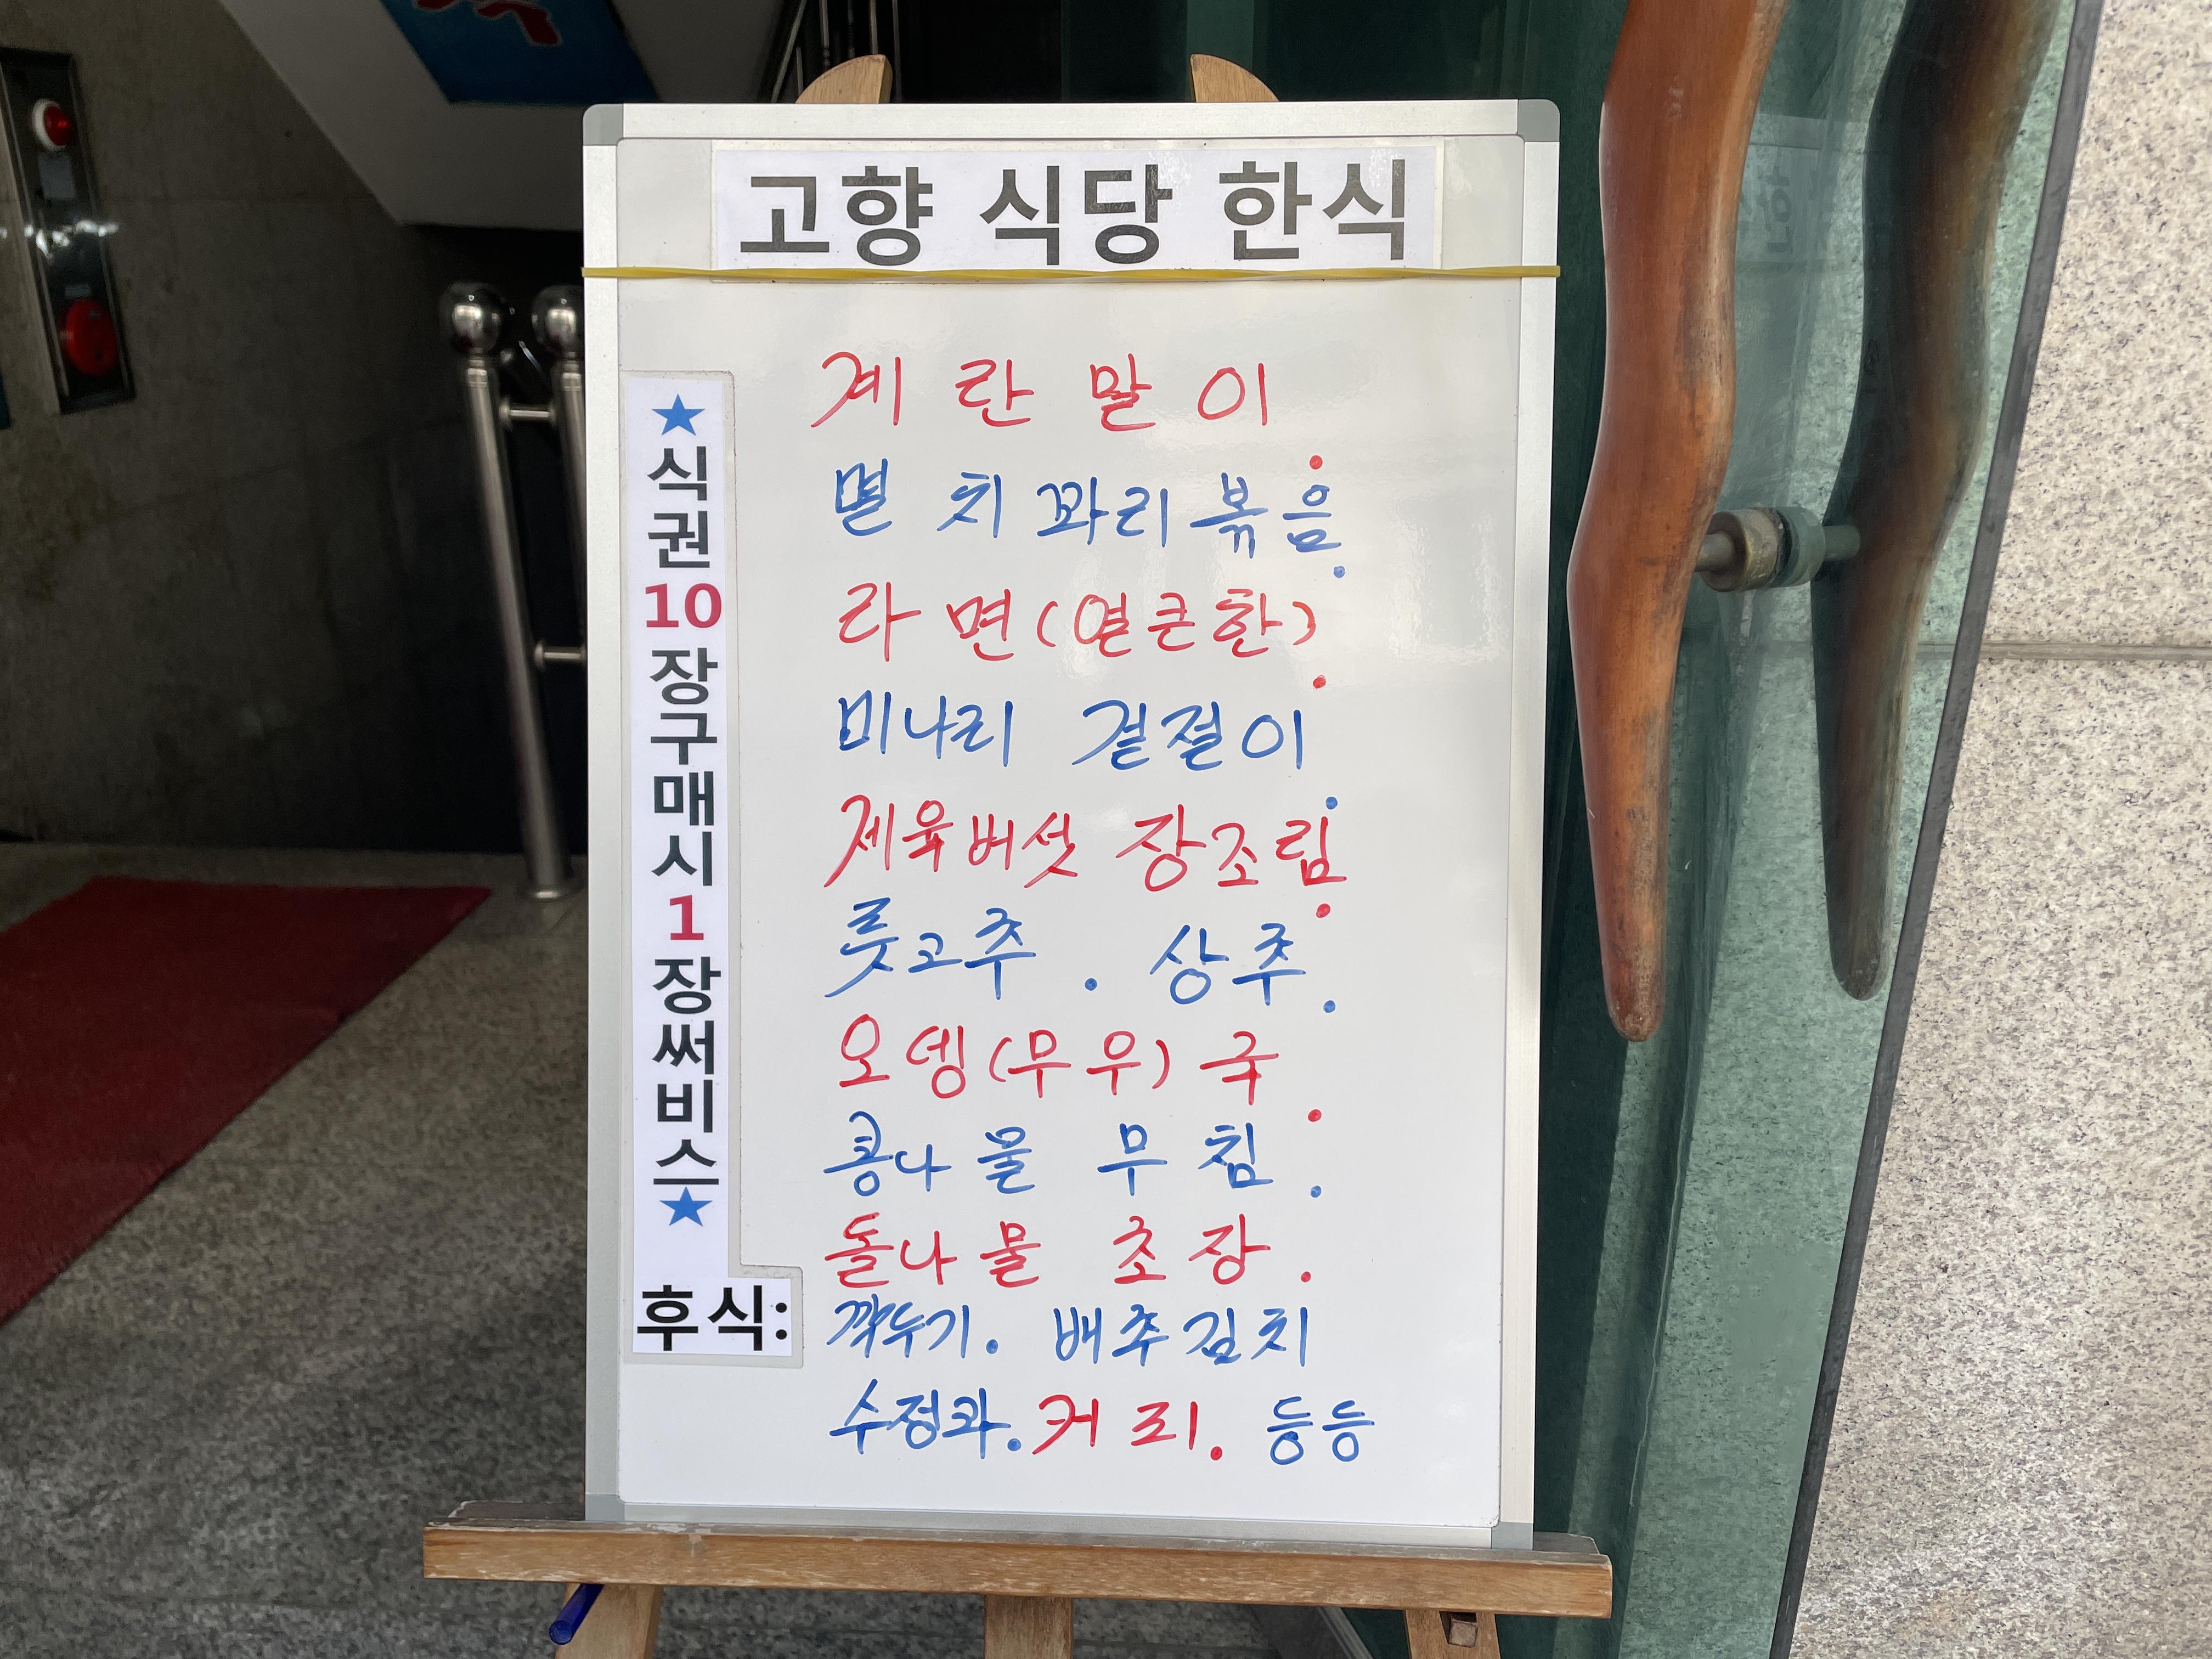 고향 식당 한식
★식권10장구매시1장써비스★
계란말이
멸치꽈리볶음.
라면(얼큰한)
미나리 겉절이
제육버섯 장조림
풋고추 . 상추
오뎅(무우)국
콩나물 무침
돌나물 초장.
깍두기. 배추김치
후식:
수정과. 커피. 등등